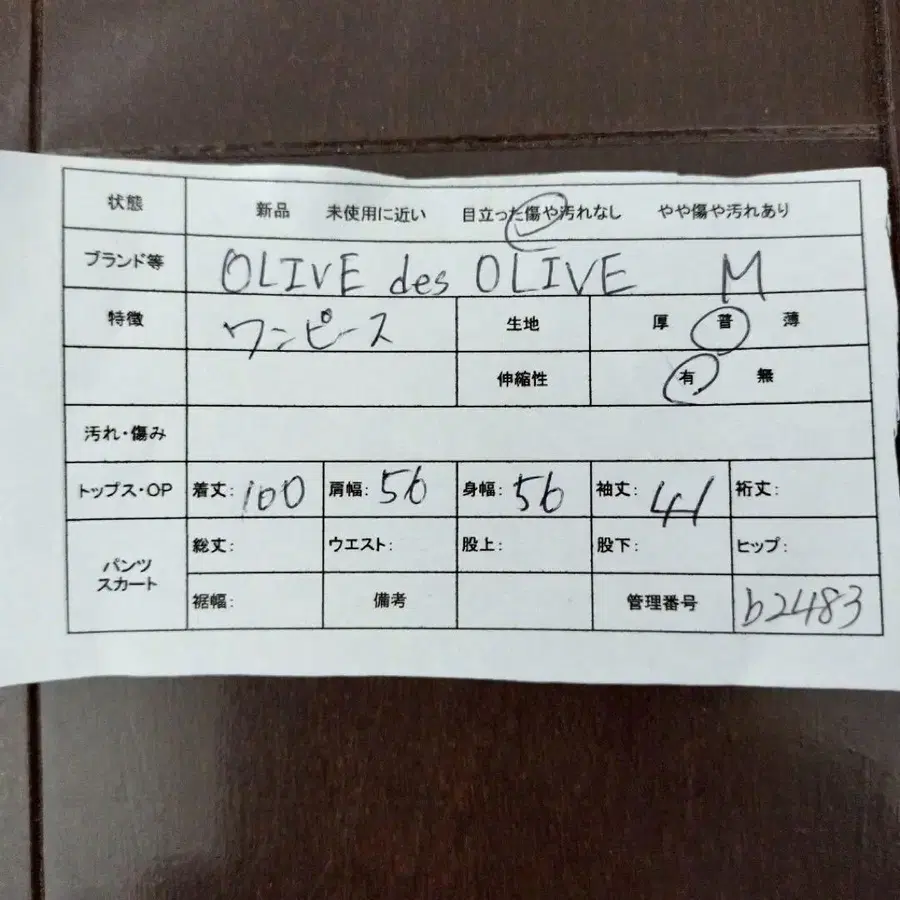 状態 新品 未使用に近い 目立った傷や汚れなし やや傷や汚れあり
ブランド等 OLIVE des OLIVE M
特徴 ワンピース 生地 厚 普 薄
伸縮性 有 無
汚れ・傷み
トップス・OP 着丈: 100 肩幅: 56 身幅: 56 袖丈: 41 裄丈:
パンツ スカート 総丈: ウエスト: 股上: 股下: ヒップ:
裾幅: 備考 管理番号 b2483